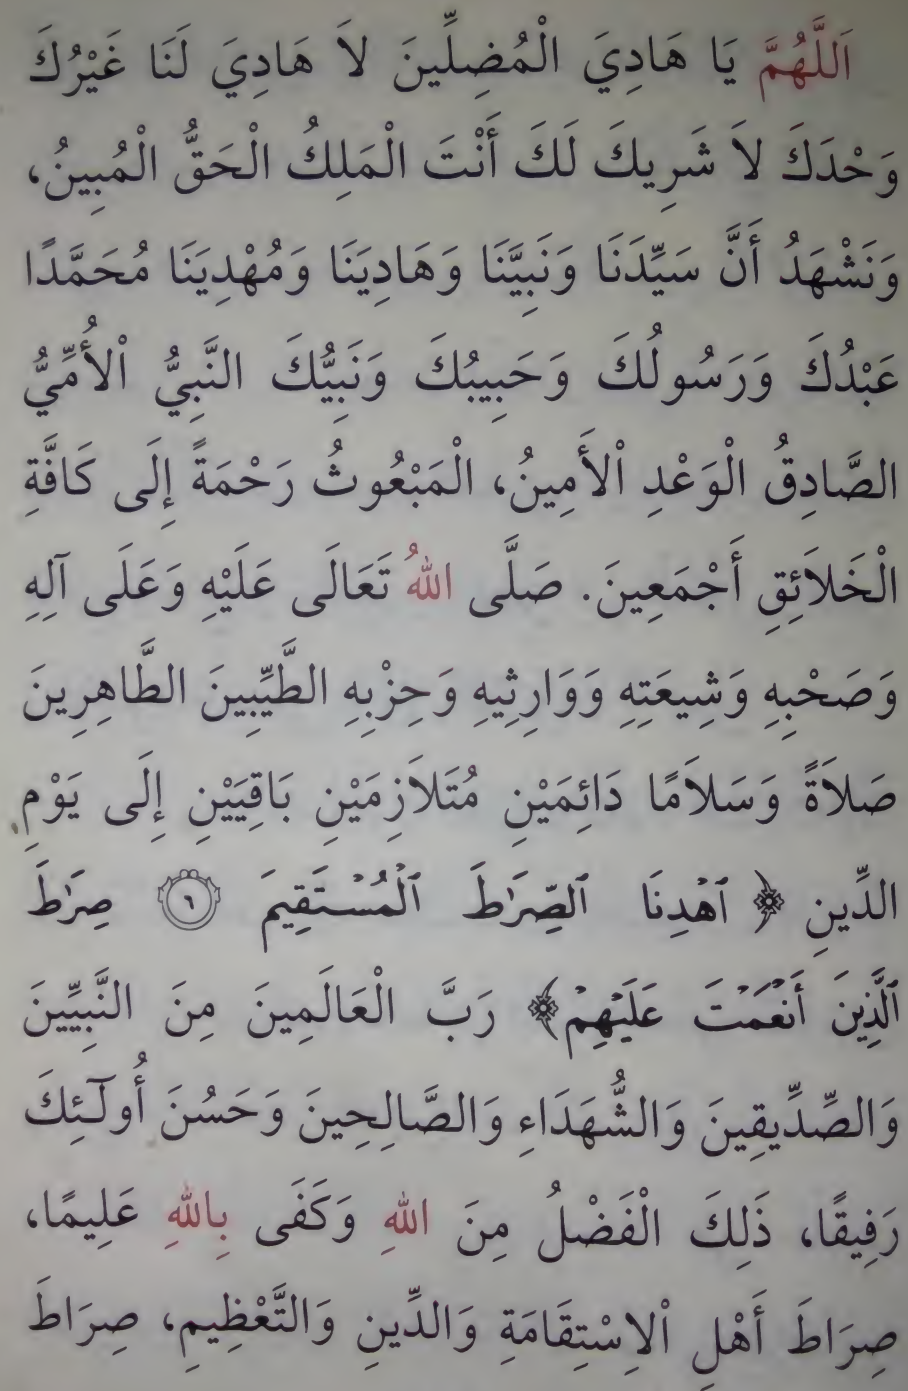 اَللَّهُمَّ يَا هَادِيَ الْمُضِلِّينَ لاَ هَادِيَ لَنَا غَيْرُكَ
وَحْدَكَ لاَ شَرِيكَ لَكَ أَنْتَ الْمَلِكُ الْحَقُّ الْمُبِينُ،
وَنَشْهَدُ أَنَّ سَيِّدَنَا وَنَبِيَّنَا وَهَادِيَنَا وَمُهْدِيَنَا مُحَمَّدًا
عَبْدُكَ وَرَسُولُكَ وَحَبِيبُكَ وَنَبِيُّكَ النَّبِيُّ اْلأُمِّيُّ
الصَّادِقُ الْوَعْدِ اْلأَمِينُ، الْمَبْعُوثُ رَحْمَةً إِلَى كَافَّةِ
الْخَلاَئِقِ أَجْمَعِينَ. صَلَّى اللهُ تَعَالَى عَلَيْهِ وَعَلَى آلِهِ
وَصَحْبِهِ وَشِيعَتِهِ وَوَارِثِيهِ وَحِزْبِهِ الطَّيِّبِينَ الطَّاهِرِينَ
صَلاَةً وَسَلاَمًا دَائِمَيْنِ مُتَلاَزِمَيْنِ بَاقِيَيْنِ إِلَى يَوْمِ
الدِّينِ ﴿ ٱهۡدِنَا ٱلصِّرَٰطَ ٱلۡمُسۡتَقِيمَ ٦ صِرَٰطَ
ٱلَّذِينَ أَنۡعَمۡتَ عَلَيۡهِمۡ﴾ رَبَّ الْعَالَمِينَ مِنَ النَّبِيِّينَ
وَالصِّدِّيقِينَ وَالشُّهَدَاءِ وَالصَّالِحِينَ وَحَسُنَ أُولَـٓئِكَ
رَفِيقًا، ذَلِكَ الْفَضْلُ مِنَ اللهِ وَكَفَى بِاللهِ عَلِيمًا،
صِرَاطَ أَهْلِ اْلاِسْتِقَامَةِ وَالدِّينِ وَالتَّعْظِيمِ، صِرَاطَ